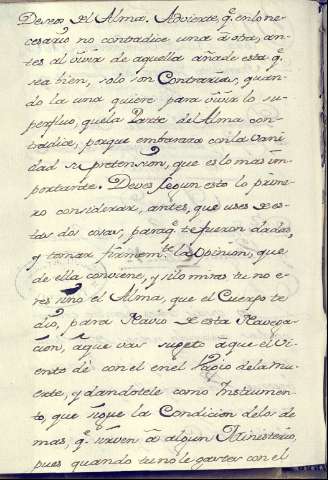 Deseos del Alma. Adviertase, q̃. en lo ne-
cesario no contradice una á otra, an-
tes al vivir de aquella añade esta q̃.
sea bien, solo son Contrarias, quan-
do la una quiere para vivir lo su-
perfluo, que la Parte del Alma con-
tradice, porque embaraza con la vani-
dad su pretension, que es lo mas im-
portante. Deves segun esto lo prime-
ro considerar, antes, que uses de es-
tas dos cosas, paraq̃. te fueron dadas,
y tomar firmem.te la opinion, que
de ella conviene, y si lo miras tu no e-
res sino el Alma, que el Cuerpo te
dió, para Navio de esta Navega-
cion, áque vas sugeto áque el vi-
ento dé con el en el Vagio de la mu-
erte, y dandotele como Instrumen-
to, que sigue la Condicion de los de
mas, q̃. sirven á algun Ministerio,
pues quando tu no le gastes con el